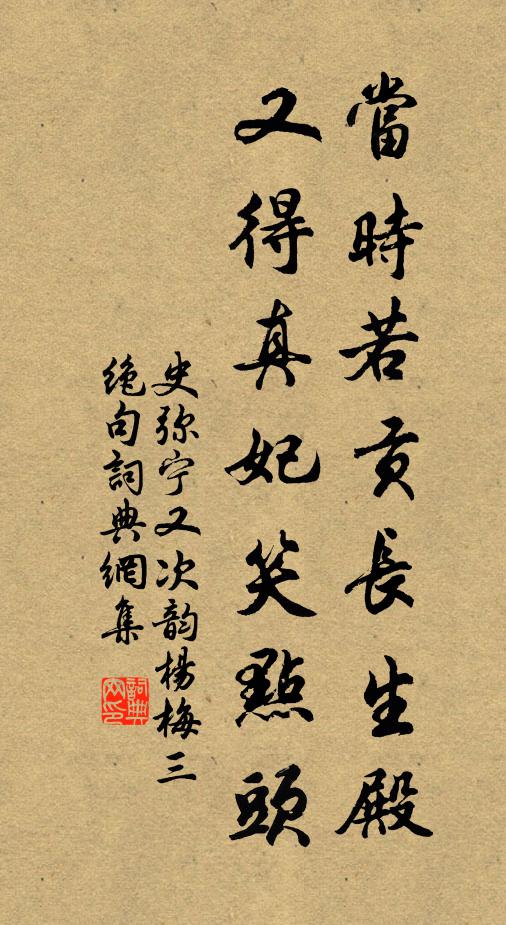 當時若貢長生殿
又得真妃笑點頭
史弥宁又次韵楊梅三
絶句詞典網集
詞典
网印